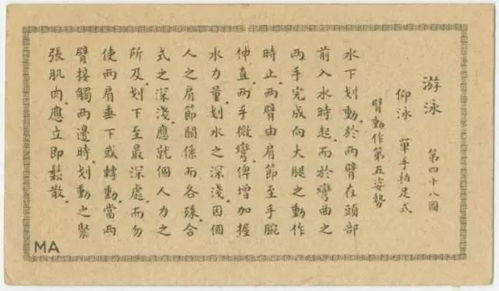 游泳　第四十八圖
仰泳　單手拍足式
臂動作第五姿勢
水下划動於兩臂在頭部
前入水時起而於彎曲之
兩手完成向大腿之動作
時止兩臂由肩節至手腕
伸直兩手微彎俾增加握
水力量划水之深淺因個
人之肩節關係而各殊合
式之深淺應就個人力之
所及划下至最深處而勿
使兩肩垂下或轉動當兩
臂接觸兩邊時划動之緊
張肌肉應立即鬆散
MA